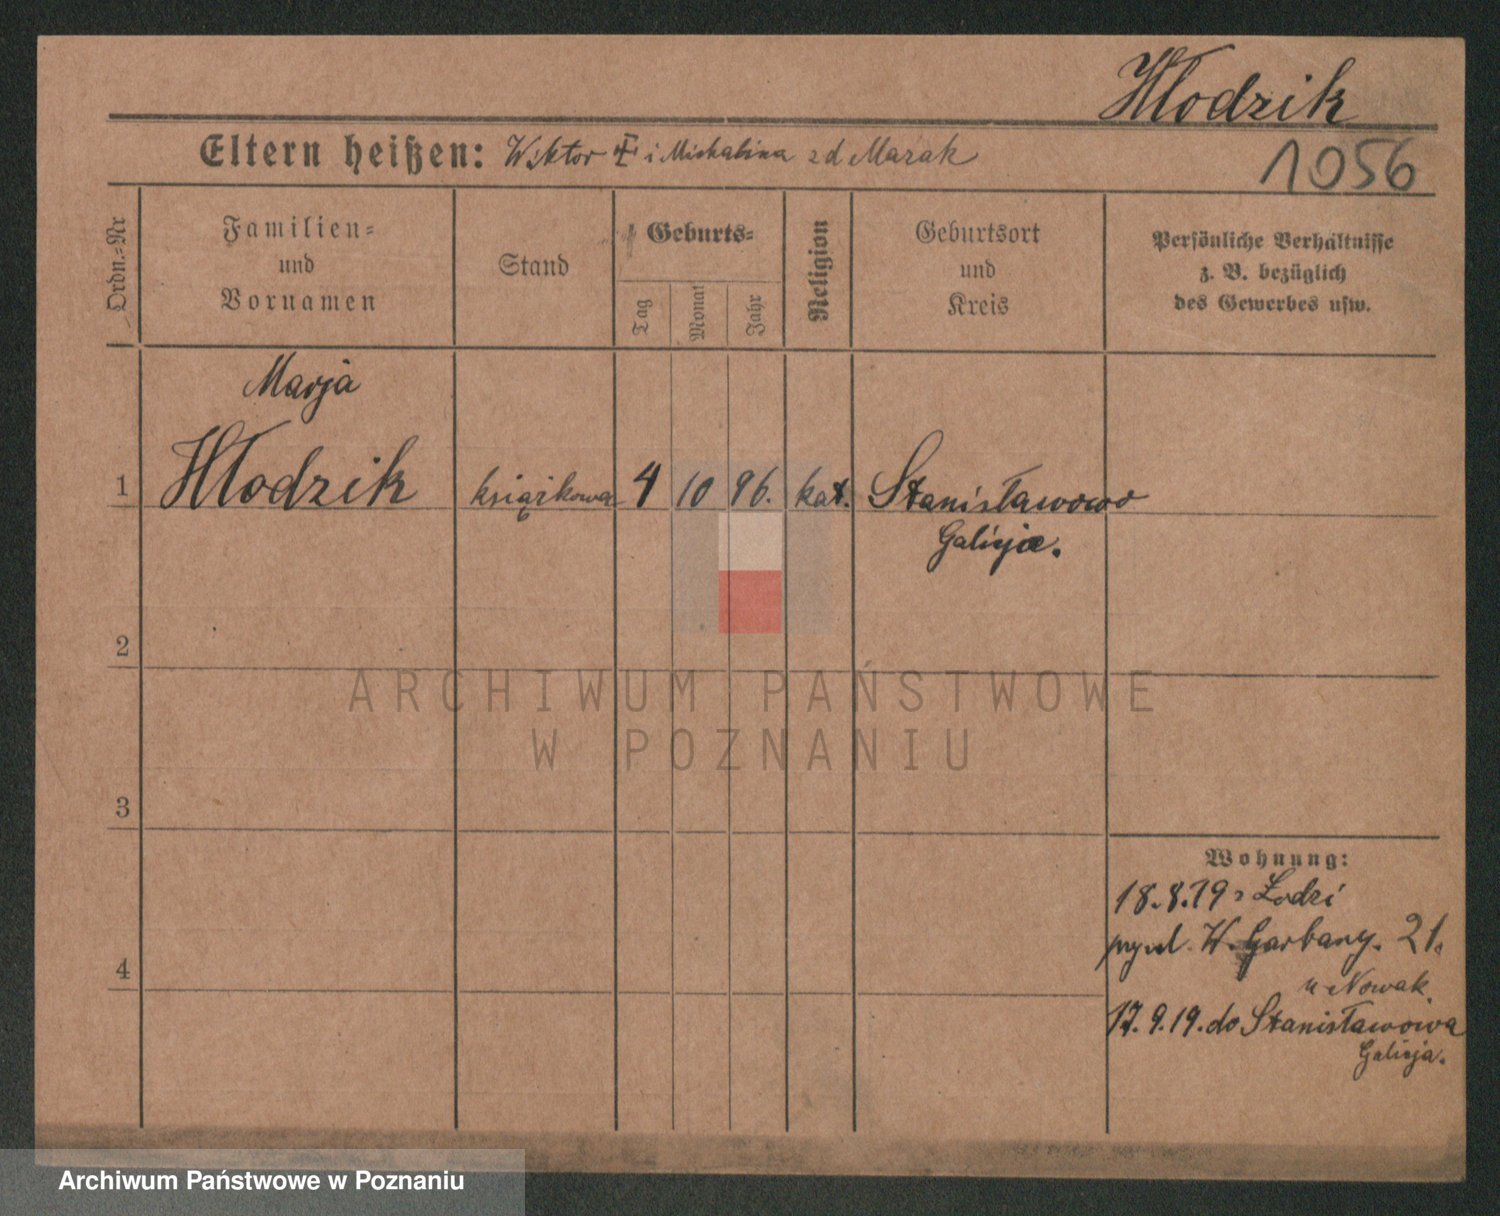 Włodzik
Eltern heißen: Wiktor i Michalina zd Marak
1056
Ordn.=Nr
Familien=
und
Vornamen
Stand
Geburts=
Tag
Monat
Jahr
Religion
Geburtsort
und
Kreis
Persönliche Verhältnisse
z. B. bezüglich
des Gewerbes usw.
Marja
1 Włodzik książkowa 4 10 96. kat. Stanisławowo
Galicja.
2
ARCHIWUM PAŃSTWOWE
W POZNANIU
3
Wohnung:
18.8.19 z Łodzi
W. Garbary. 21.
4
u Nowak.
17.9.19. do Stanisławowa
Galicja.
Archiwum Państwowe w Poznaniu